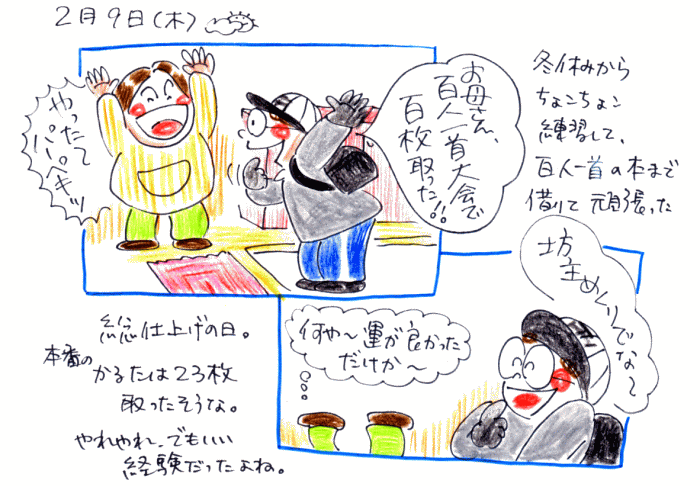 2月9日(木)
お母さん、
百人一首大会で
百枚取った!!
やったて
パパペキッ
冬休みから
ちょこちょこ
練習して、
百人一首の本まで
借りて頑張った
坊主めくりでな〜
何や〜運が良かった
だけか〜
総仕上げの日。
本番の
かるたは23枚
取ったそうな。
やれやれ、でもいい
経験だったよね。